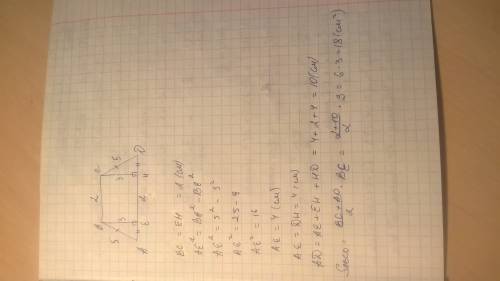 B 2 C
5 3 3 5
A 4 E 2 H 4 D
BC = EH = 2 (см)
AE² = BA² - BE²
AE² = 5² - 3²
AE² = 25 - 9
AE² = 16
AE = 4 (см)
AE = DH = 4 (см)
AD = AE + EH + HD = 4 + 2 + 4 = 10 (см)
SABCD = BC+AD/2 · BE = 2+10/2 · 3 = 6 · 3 = 18 (см²)